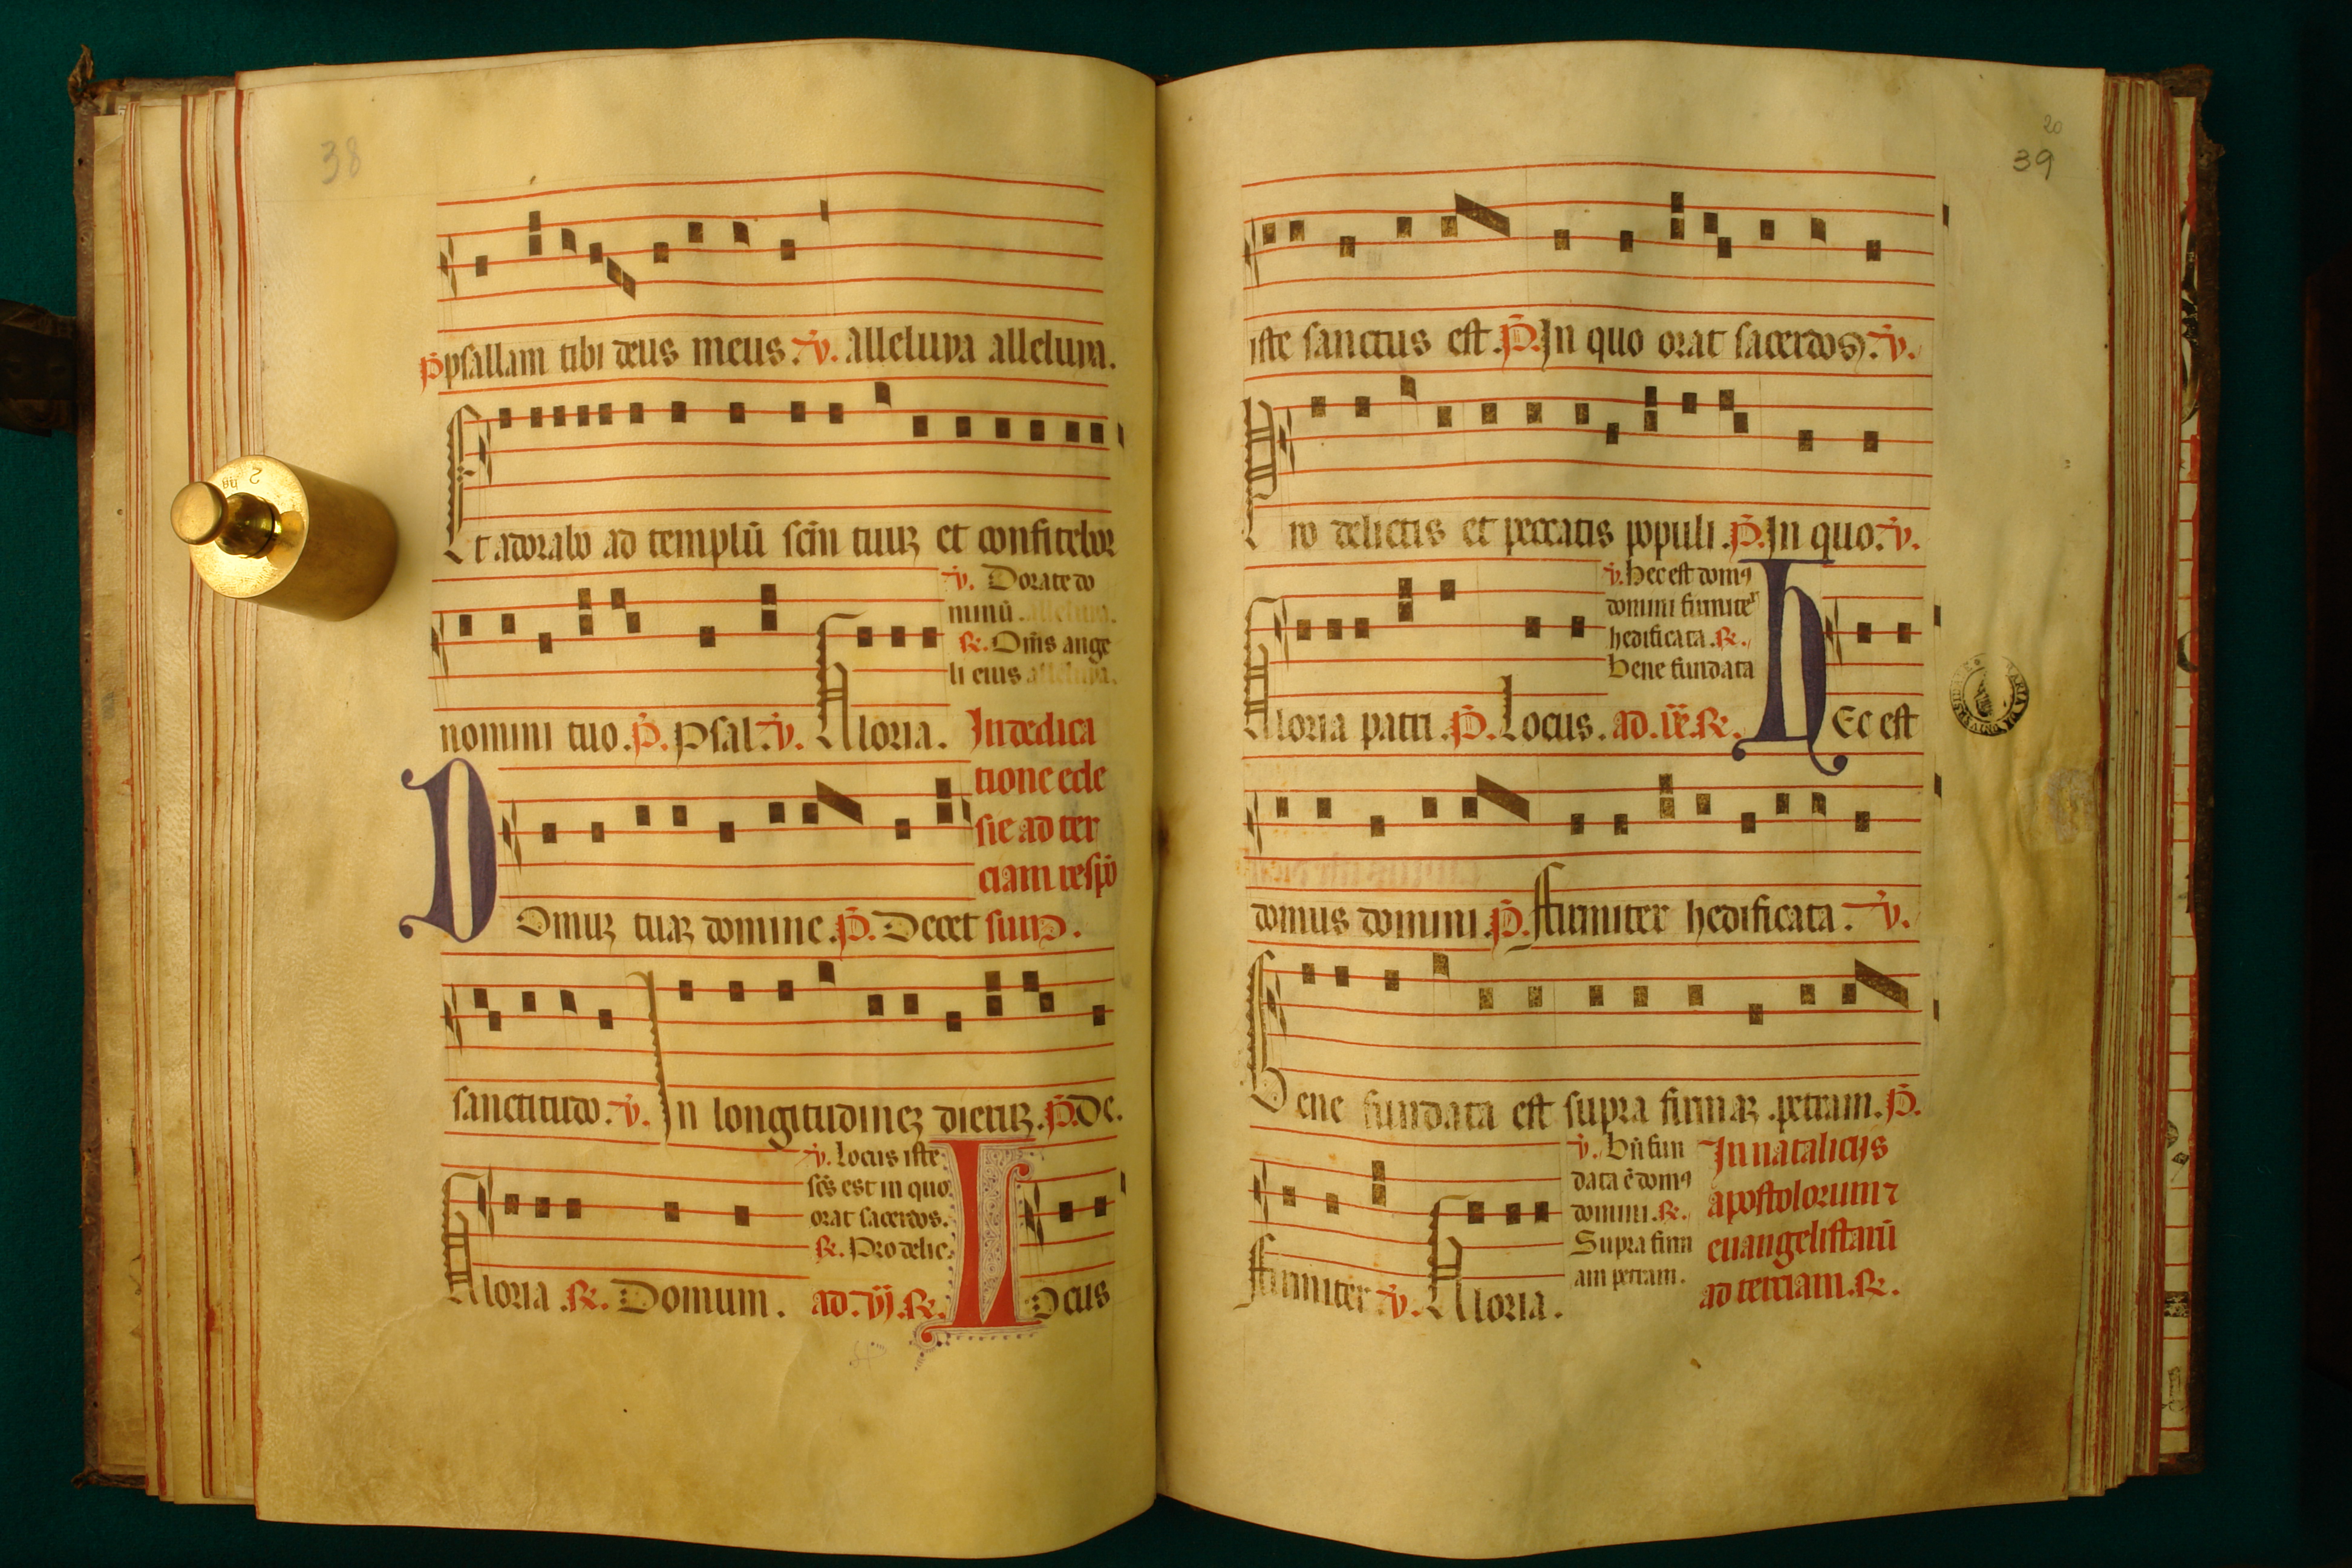 38
p̄ psallam tibi deus meus. v̄. alleluya alleluya.
Et adorabo ad templū scm̄ tuuꝫ et confitebor
v̄. Dorate do
minū. alleluya.
℟. Om̄s ange
li eius alleluya.
nomini tuo. p̄. psal. v̄. Gloria. In dedica
tione ecle
sie ad ter
ciam respō
Domuꝫ tuaꝫ domine. p̄. Decet sum̄.
sanctitudo. v̄. In longitudineꝫ dieruꝫ. p̄. De.
v̄. Locus iste
scs̄ est in quo
orat sacerdos.
℟. Pro delic.
Gloria. ℟. Domum. ad. vj. ℟. Locus
20
39
iste sanctus est. p̄. In quo orat sacerdos. v̄.
Pro delictis et peccatis populi. p̄. In quo. v̄.
v̄. Hec est domꝰ
domini firmiter
hedificata. ℟.
Bene fundata
Gloria patri. p̄. Locus. ad. ix. ℟. HEc est
domus domini. p̄. Firmiter hedificata. v̄.
Bene fundata est supra firmaꝫ petram. p̄.
v̄. Bn̄ fun
data ē domꝰ
domini. ℟.
Supra firm
am petram.
In nataliciis
apostolorum ⁊
euangelistarū
ad terciam. ℟.
Firmiter v̄. Gloria.